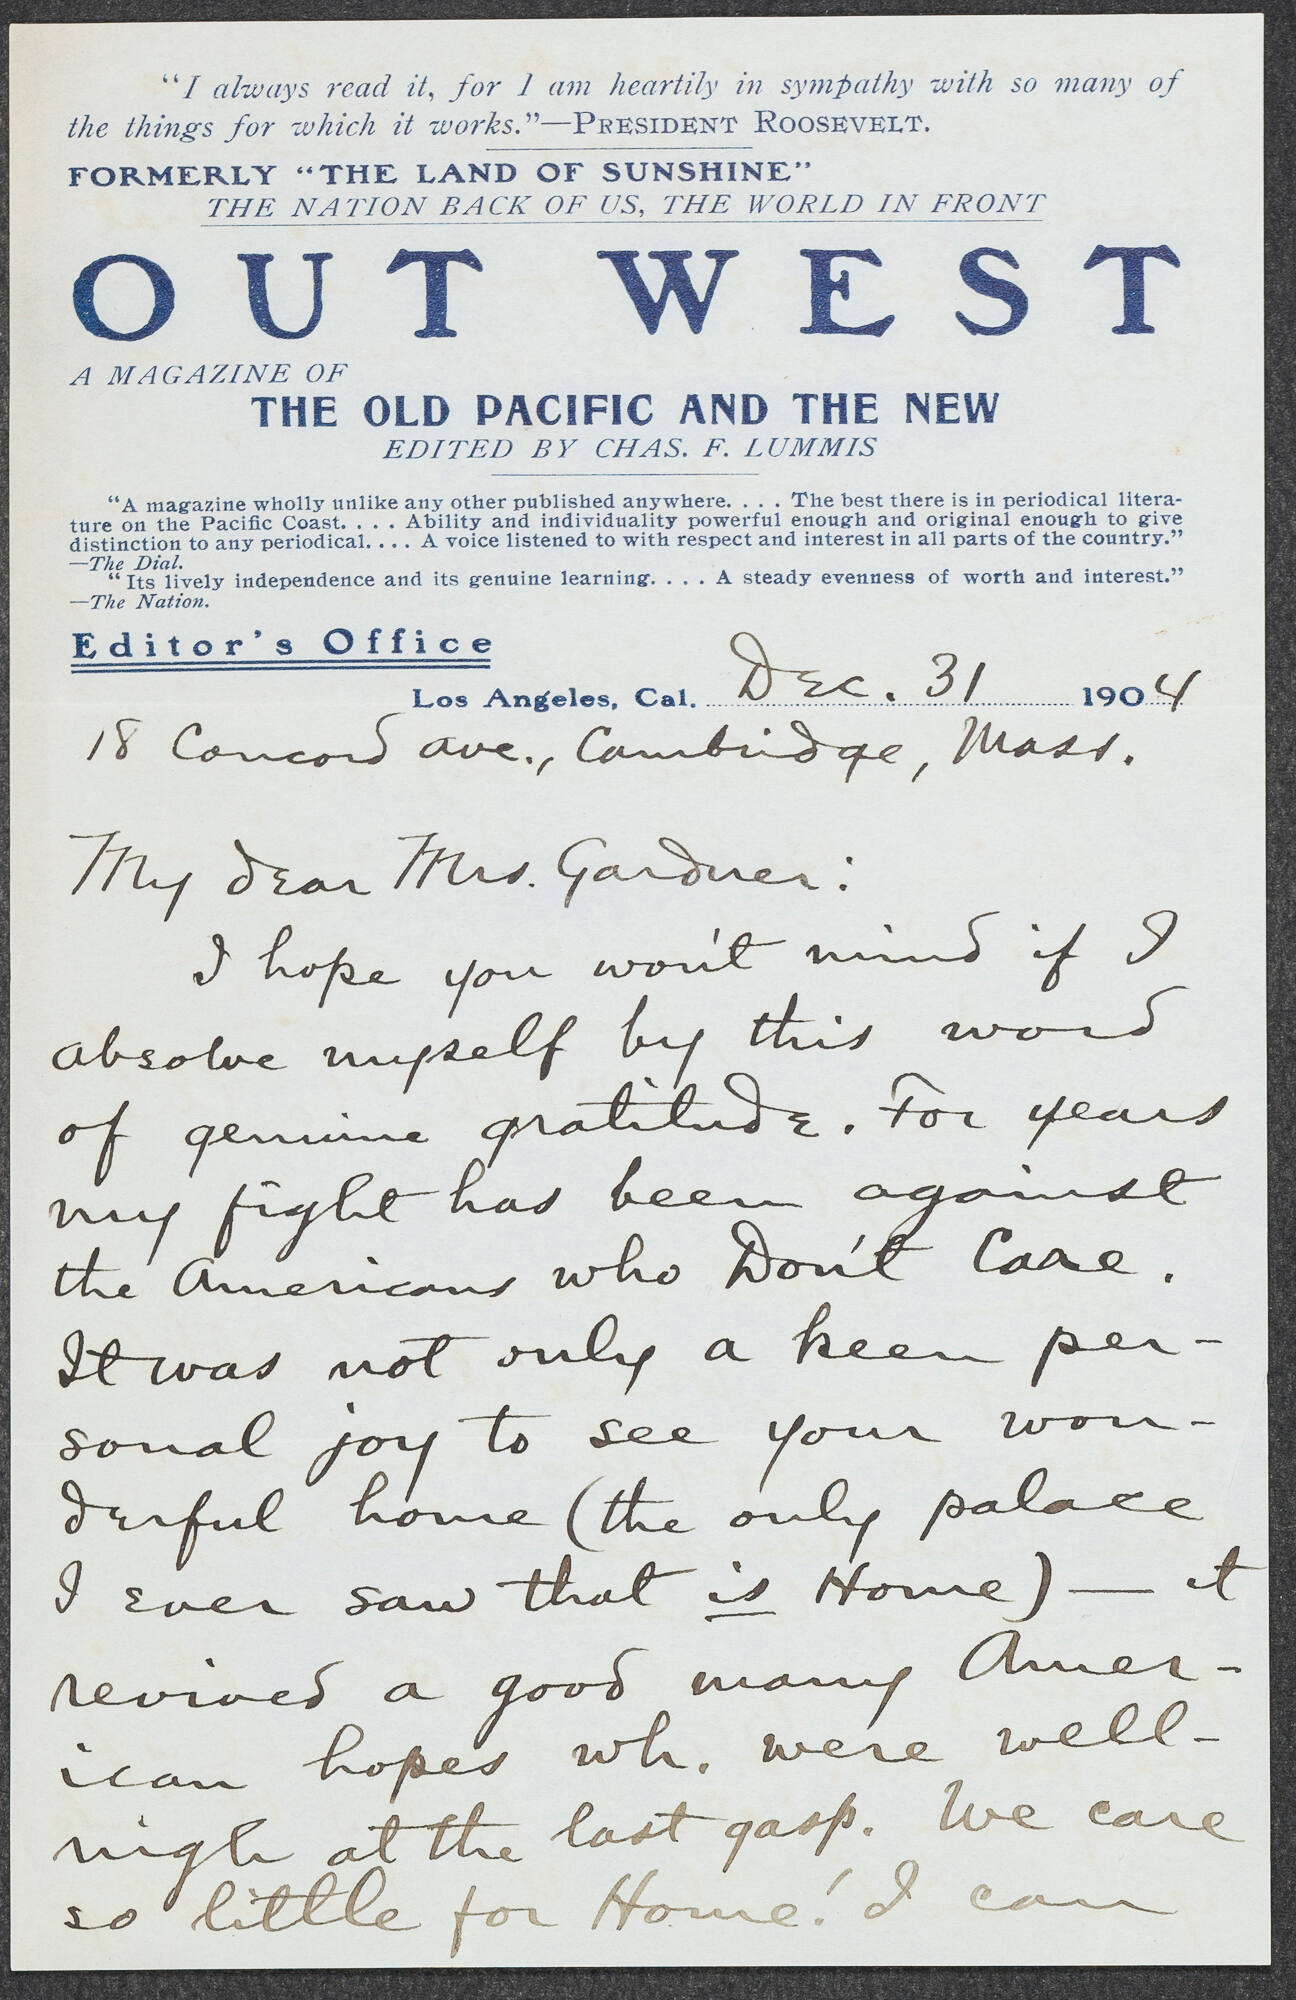 "I always read it, for I am heartily in sympathy with so many of
the things for which it works."—PRESIDENT ROOSEVELT.
FORMERLY "THE LAND OF SUNSHINE"
THE NATION BACK OF US, THE WORLD IN FRONT
OUT WEST
A MAGAZINE OF
THE OLD PACIFIC AND THE NEW
EDITED BY CHAS. F. LUMMIS
"A magazine wholly unlike any other published anywhere. . . . The best there is in periodical litera-
ture on the Pacific Coast. . . . Ability and individuality powerful enough and original enough to give
distinction to any periodical. . . . A voice listened to with respect and interest in all parts of the country."
—The Dial.
"Its lively independence and its genuine learning. . . . A steady evenness of worth and interest."
—The Nation.
Editor's Office
Los Angeles, Cal. Dec. 31 1904
18 Concord ave., Cambridge, Mass.
My dear Mrs. Gardner:
I hope you won't mind if I
absolve myself by this word
of genuine gratitude. For years
my fight has been against
the Americans who Don't Care.
It was not only a keen per-
sonal joy to see your won-
derful home (the only palace
I ever saw that is Home) — it
revived a good many Amer-
ican hopes wh. were well-
nigh at the last gasp. We care
so little for Home! I can